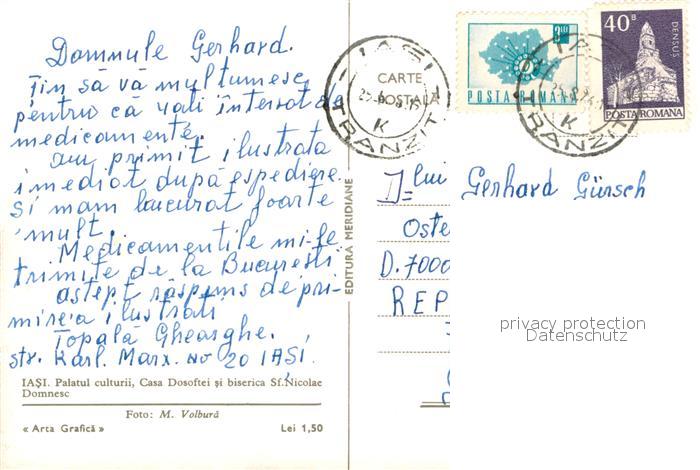 Domnule Gerhard.
Țin să vă multumesc
pentru că vati interesat de
medicamente.
am primit ilustrata
imediat după espediere
și mam bucurat foarte
mult.
Medicamentile mi le
trimite de la Bucuresti
astept răspuns de pri-
mirea ilustrati
Topală Gheorghe.
str. Karl. Marx. No 20 IAȘI.
IAȘI. Palatul culturii, Casa Dosoftei și biserica Sf. Nicolae
Domnesc
Foto: M. Volbură
« Arta Grafică » Lei 1,50
EDITURA MERIDIANE
CARTE
POSTALA
IAȘI
TRANZIT
K
POSTA ROMANA
40 B
DENSUS
POSTA ROMANA
TRANZIT
K
D= lui Gerhard Gürsch
Oste
D. 7000
REP
privacy protection
Datenschutz